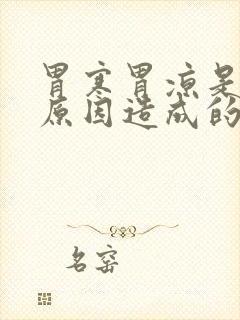 胃寒胃凉是
原因造成的
名窑